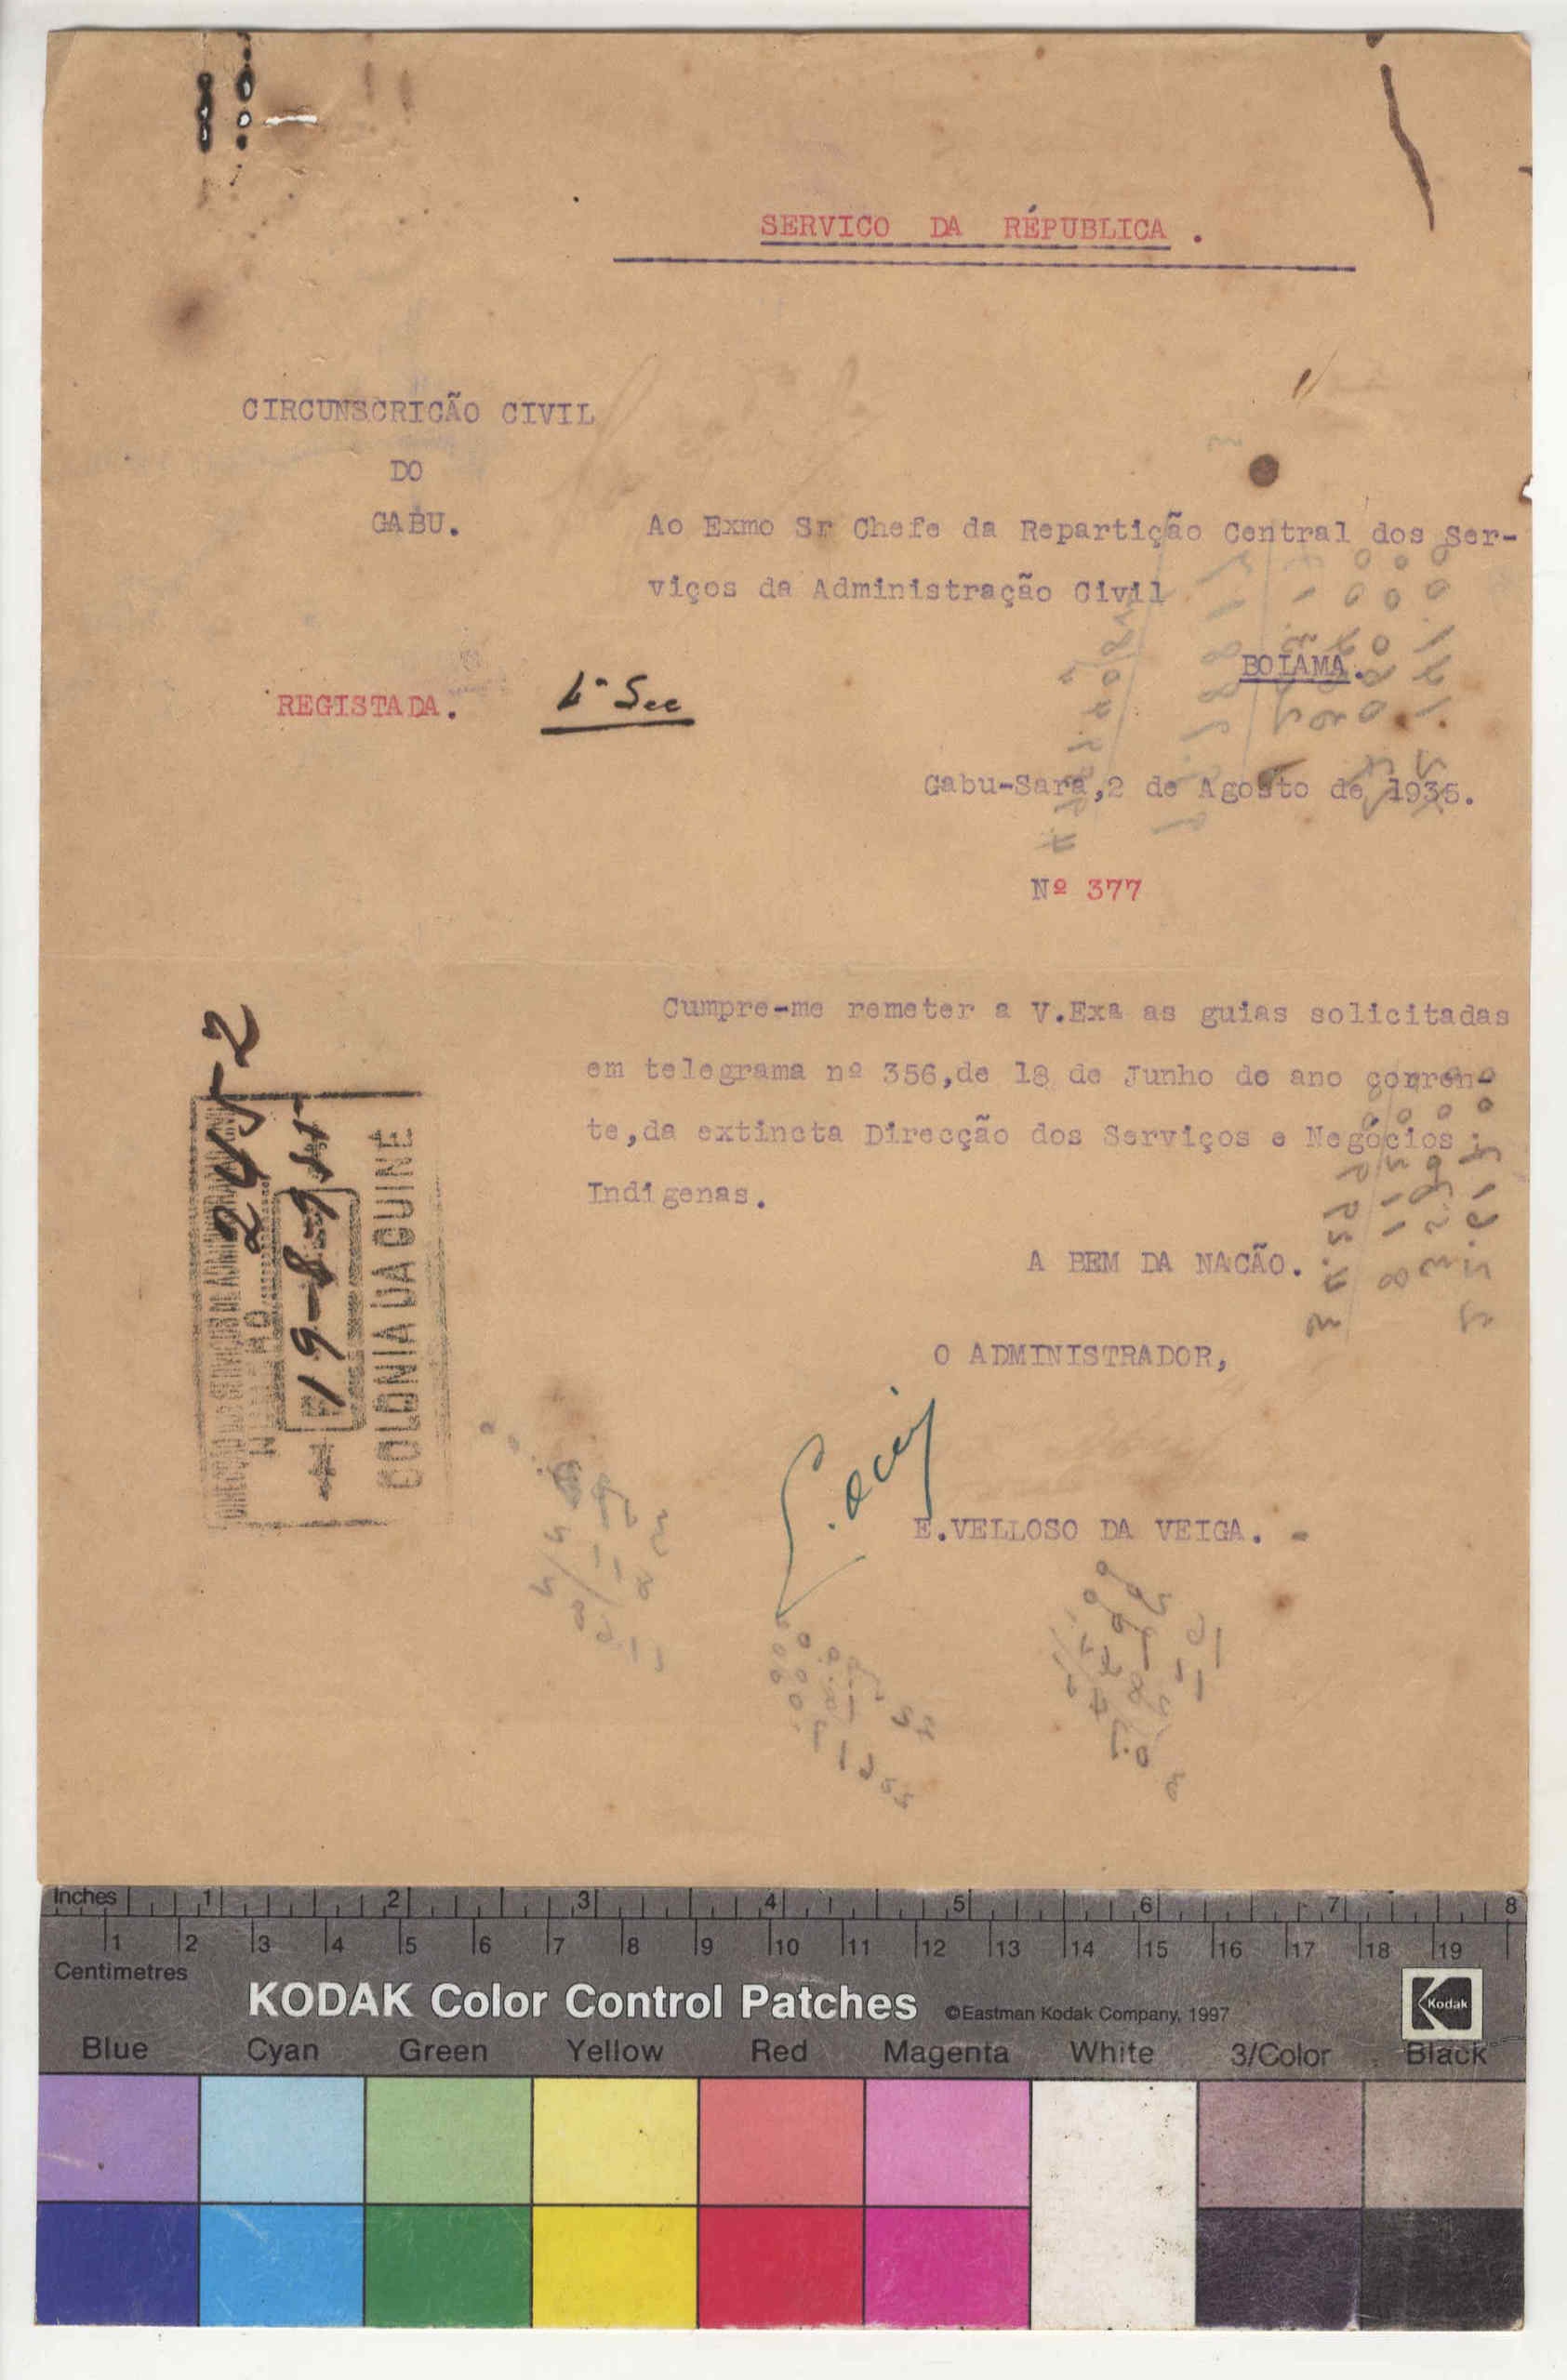 SERVICO DA RÉPUBLICA .
CIRCUNSCRICÃO CIVIL
DO
GABU.
Ao Exmo Sr Chefe da Repartição Central dos Ser-
viços da Administração Civil
BOLAMA.
REGISTADA.
1ª Sec
Gabu-Sara,2 de Agosto de 1935.
Nº 377
Cumpre-me remeter a V.Exa as guias solicitadas
em telegrama nº 356,de 18 de Junho do ano corren-
te,da extincta Direcção dos Serviços e Negócios
Indigenas.
A BEM DA NACÃO.
O ADMINISTRADOR,
E.VELLOSO DA VEIGA. -
2452
19-8-935
COLONIA DA GUINÉ
Inches 1 2 3 4 5 6 7 8
1 2 3 4 5 6 7 8 9 10 11 12 13 14 15 16 17 18 19
Centimetres
KODAK Color Control Patches ©Eastman Kodak Company, 1997 Kodak
Blue Cyan Green Yellow Red Magenta White 3/Color Black